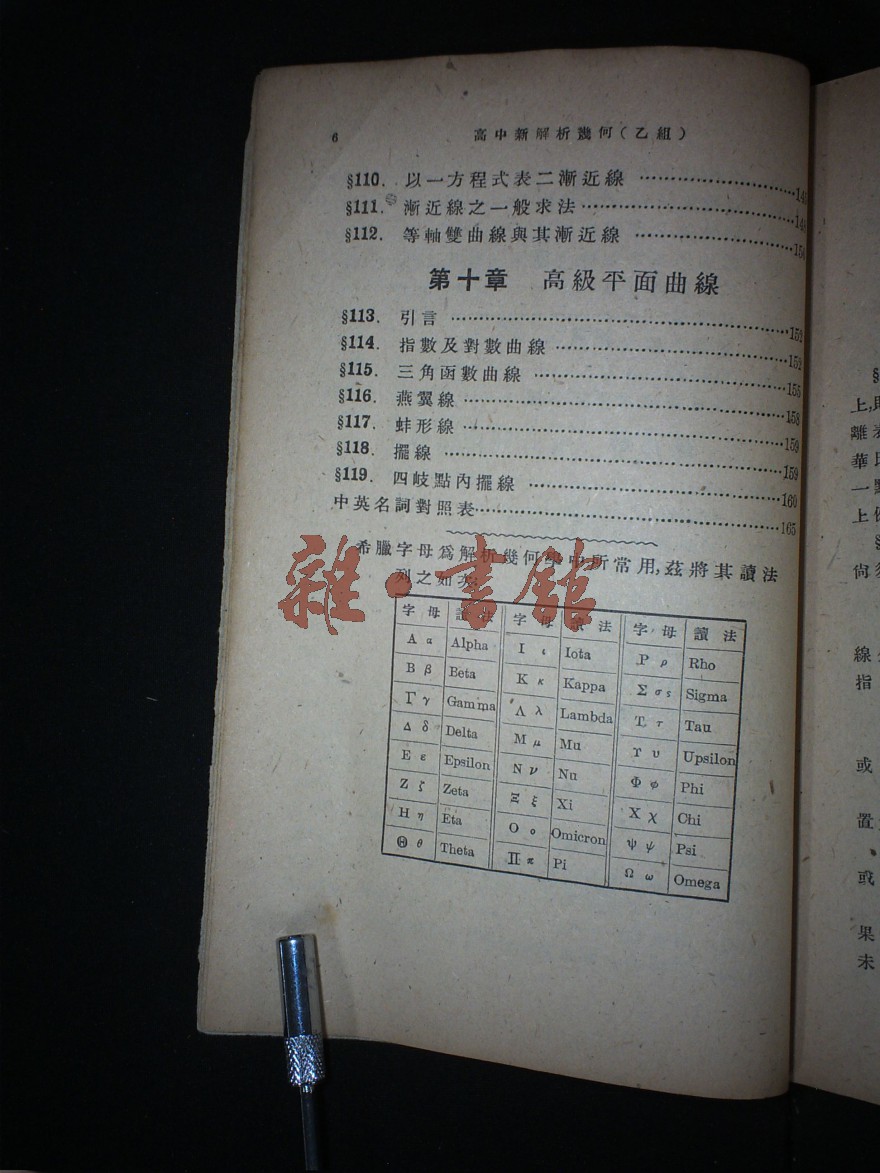 6 高中新解析幾何(乙組)
§110. 以一方程式表二漸近線
§111. 漸近線之一般求法
§112. 等軸雙曲線與其漸近線
第十章 高級平面曲線
§113. 引言 152
§114. 指數及對數曲線 152
§115. 三角函數曲線 155
§116. 燕翼線 158
§117. 蚌形線 159
§118. 擺線 159
§119. 四岐點內擺線 160
中英名詞對照表 165
希臘字母爲解析幾何學中所常用,茲將其讀法
列之如次
字母 讀法 字母 讀法 字母 讀法
Α α Alpha Ι ι Iota Ρ ρ Rho
Β β Beta Κ κ Kappa Σ σ ς Sigma
Γ γ Gamma Λ λ Lambda Τ τ Tau
Δ δ Delta Μ μ Mu Υ υ Upsilon
Ε ε Epsilon Ν ν Nu Φ φ Phi
Ζ ζ Zeta Ξ ξ Xi Χ χ Chi
Η η Eta Ο ο Omicron Ψ ψ Psi
Θ θ Theta Π π Pi Ω ω Omega
雜·書館
§
上,則
離
華
一
上
§
尙
線
指
或
置
或
果
未